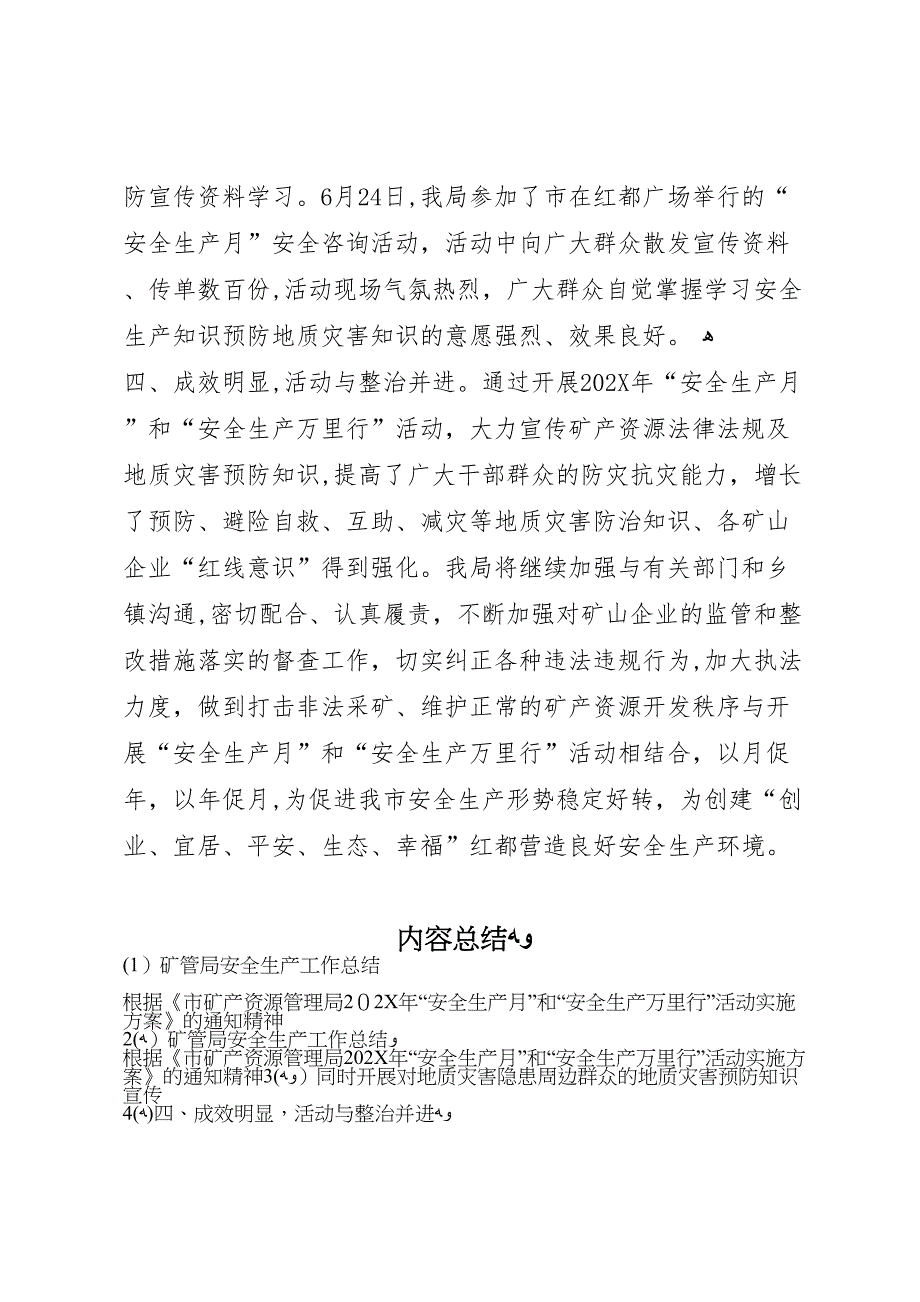 防宣传资料学习。6月24日,我局参加了市在红都广场举行的“
安全生产月”安全咨询活动，活动中向广大群众散发宣传资料
、传单数百份,活动现场气氛热烈，广大群众自觉掌握学习安全
生产知识预防地质灾害知识的意愿强烈、效果良好。 ﻫ
四、成效明显,活动与整治并进。通过开展202X年“安全生产月
”和“安全生产万里行”活动，大力宣传矿产资源法律法规及
地质灾害预防知识,提高了广大干部群众的防灾抗灾能力，增长
了预防、避险自救、互助、减灾等地质灾害防治知识、各矿山
企业“红线意识”得到强化。我局将继续加强与有关部门和乡
镇沟通,密切配合、认真履责，不断加强对矿山企业的监管和整
改措施落实的督查工作，切实纠正各种违法违规行为,加大执法
力度，做到打击非法采矿、维护正常的矿产资源开发秩序与开
展“安全生产月”和“安全生产万里行”活动相结合，以月促
年，以年促月,为促进我市安全生产形势稳定好转，为创建“创
业、宜居、平安、生态、幸福”红都营造良好安全生产环境。
内容总结ﻭﻪ
(1）矿管局安全生产工作总结
根据《市矿产资源管理局2０2X年“安全生产月”和“安全生产万里行”活动实施
方案》的通知精神
2(ﻪ）矿管局安全生产工作总结ﻭ
根据《市矿产资源管理局202X年“安全生产月”和“安全生产万里行”活动实施方
案》的通知精神3(ﻭﻪ）同时开展对地质灾害隐患周边群众的地质灾害预防知识
宣传
4(ﻪ)四、成效明显，活动与整治并进ﻭﻪ